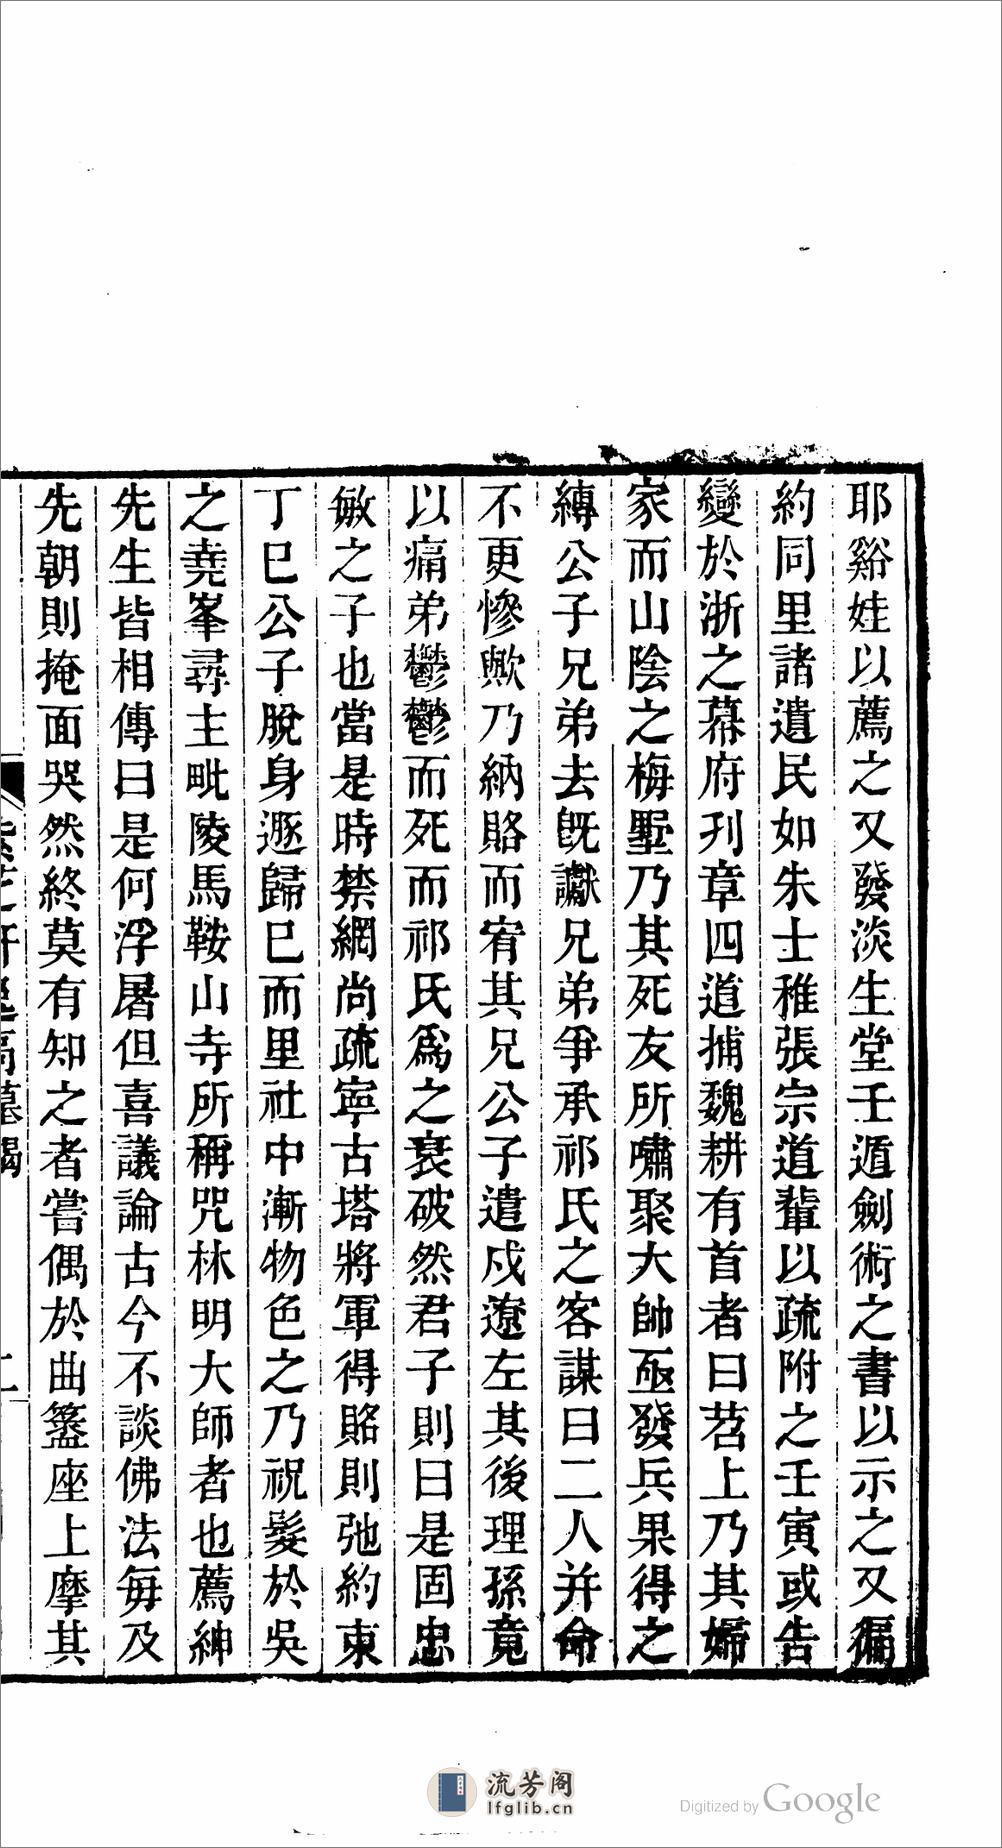 耶谿娃以薦之又發淡生堂壬遁劍術之書以示之又徧
約同里諸遺民如朱士稚張宗道輩以疏附之壬寅或告
變於浙之幕府刋章四道捕魏耕有首者曰苕上乃其婦
家而山陰之梅墅乃其死友所嘯聚大帥亟發兵果得之
縛公子兄弟去旣讞兄弟爭承祁氏之客謀曰二人并命
不更慘歟乃納賂而宥其兄公子遣戍遼左其後理孫竟
以痛弟鬱鬱而死而祁氏爲之衰破然君子則曰是固忠
敏之子也當是時禁網尚疏寧古塔將軍得賂則弛約束
丁巳公子脫身遯歸已而里社中漸物色之乃祝髮於吳
之堯峯尋主毗陵馬鞍山寺所稱咒林明大師者也薦紳
先生皆相傳曰是何浮屠但喜議論古今不談佛法每及
先朝則掩面哭然終莫有知之者嘗偶於曲盝座上摩其
流芳阁
lfglib.cn
Digitized by Google